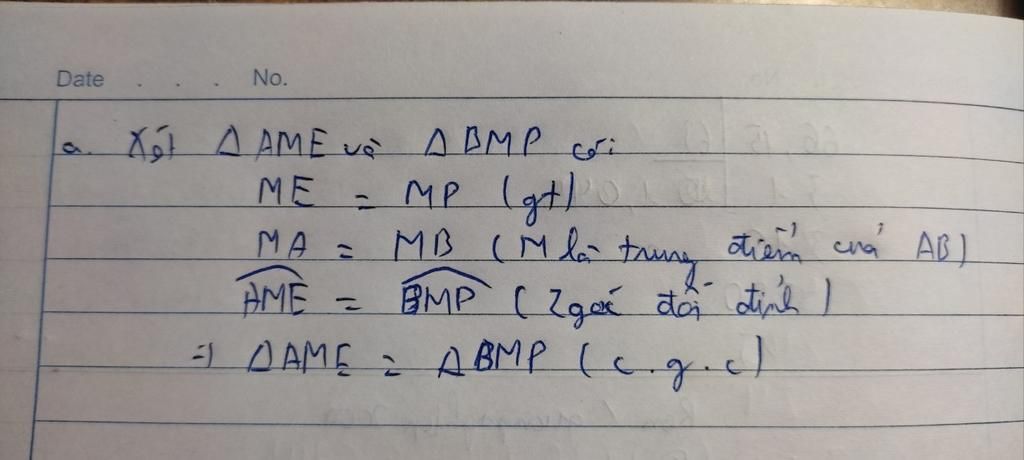 Date . . . No.
a. Xét Δ AME và Δ BMP có:
ME = MP (gt)
MA = MB (M là trung điểm của AB)
AME = BMP (2 góc đối đỉnh)
=> ΔAME = ΔBMP (c.g.c)